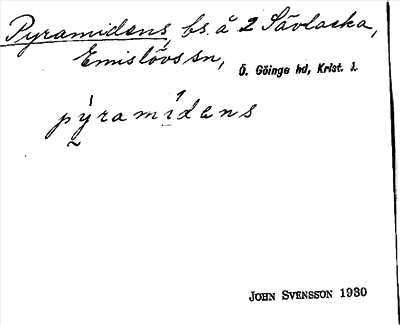 Pyramidens, bs. å 2 Sävlacka,
Emislövs sn, Ö. Göinge hd, Krist. l.
pyramidens
JOHN SVENSSON 1930